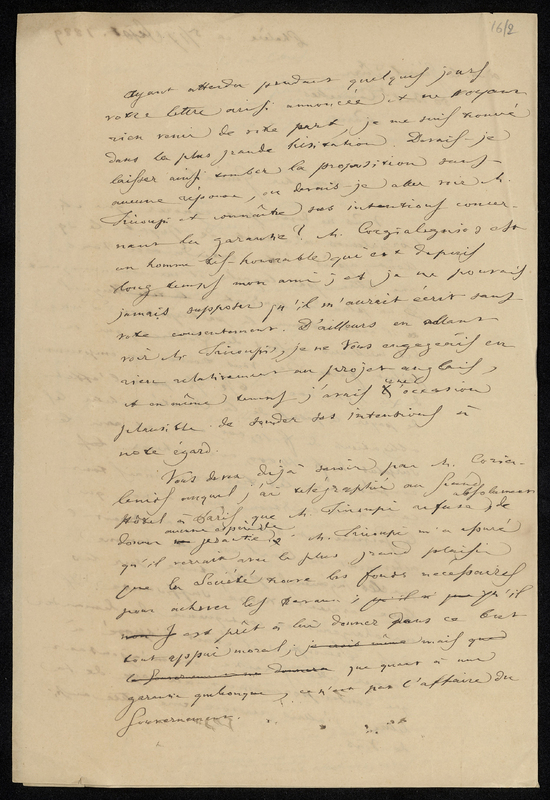 16/2
Ayant attendu pendant quelques jours
votre lettre ainsi annoncée et ne voyant
rien venir de votre part, je me suis trouvé
dans la plus grande hésitation. Devais-je
laisser ainsi tomber la proposition sans
aucune réponse, ou devais-je aller voir M.
Tricoupi et connaître ses intentions concer-
nant la garantie? M. Corgialegnios est
un homme très honorable qui est depuis
long temps mon ami; et je ne pouvais
jamais supposer qu'il m'aurait écrit sans
votre consentement. D'ailleurs en allant
voir M. Tricoupi, je ne vous engageais en
rien relativement au projet anglais,
et en même temps j'avais une occasion
plausible de sonder ses intentions à
notre égard.
Vous devez déjà savoir par M.
auquel j'ai télégraphié au Grand
Hôtel à Paris que M. Tricoupi refusa absolument de
donner aucune espèce de garantie. M. Tricoupi m'a assuré
qu'il verrait avec le plus grand plaisir
que la Société trouve les fonds nécessaires
pour achever les travaux; qu'il
est prêt à lui donner dans ce but
tout appui moral; mais
que quant à une
garantie quelconque, ce n'est pas l'affaire du
Gouvernement.